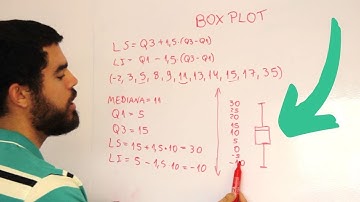 BOXPLOT
LS = Q3 + 1,5.(Q3-Q1)
LI = Q1 - 1,5.(Q3-Q1)
(-2, 3, 5, 8, 9, 11, 13, 14, 15, 17, 35)
MEDIANA = 11
Q1 = 5
Q3 = 15
LS = 15 + 1,5.10 = 30
LI = 5 - 1,5.10 = -10
30
25
20
15
10
5
0
-5
-10